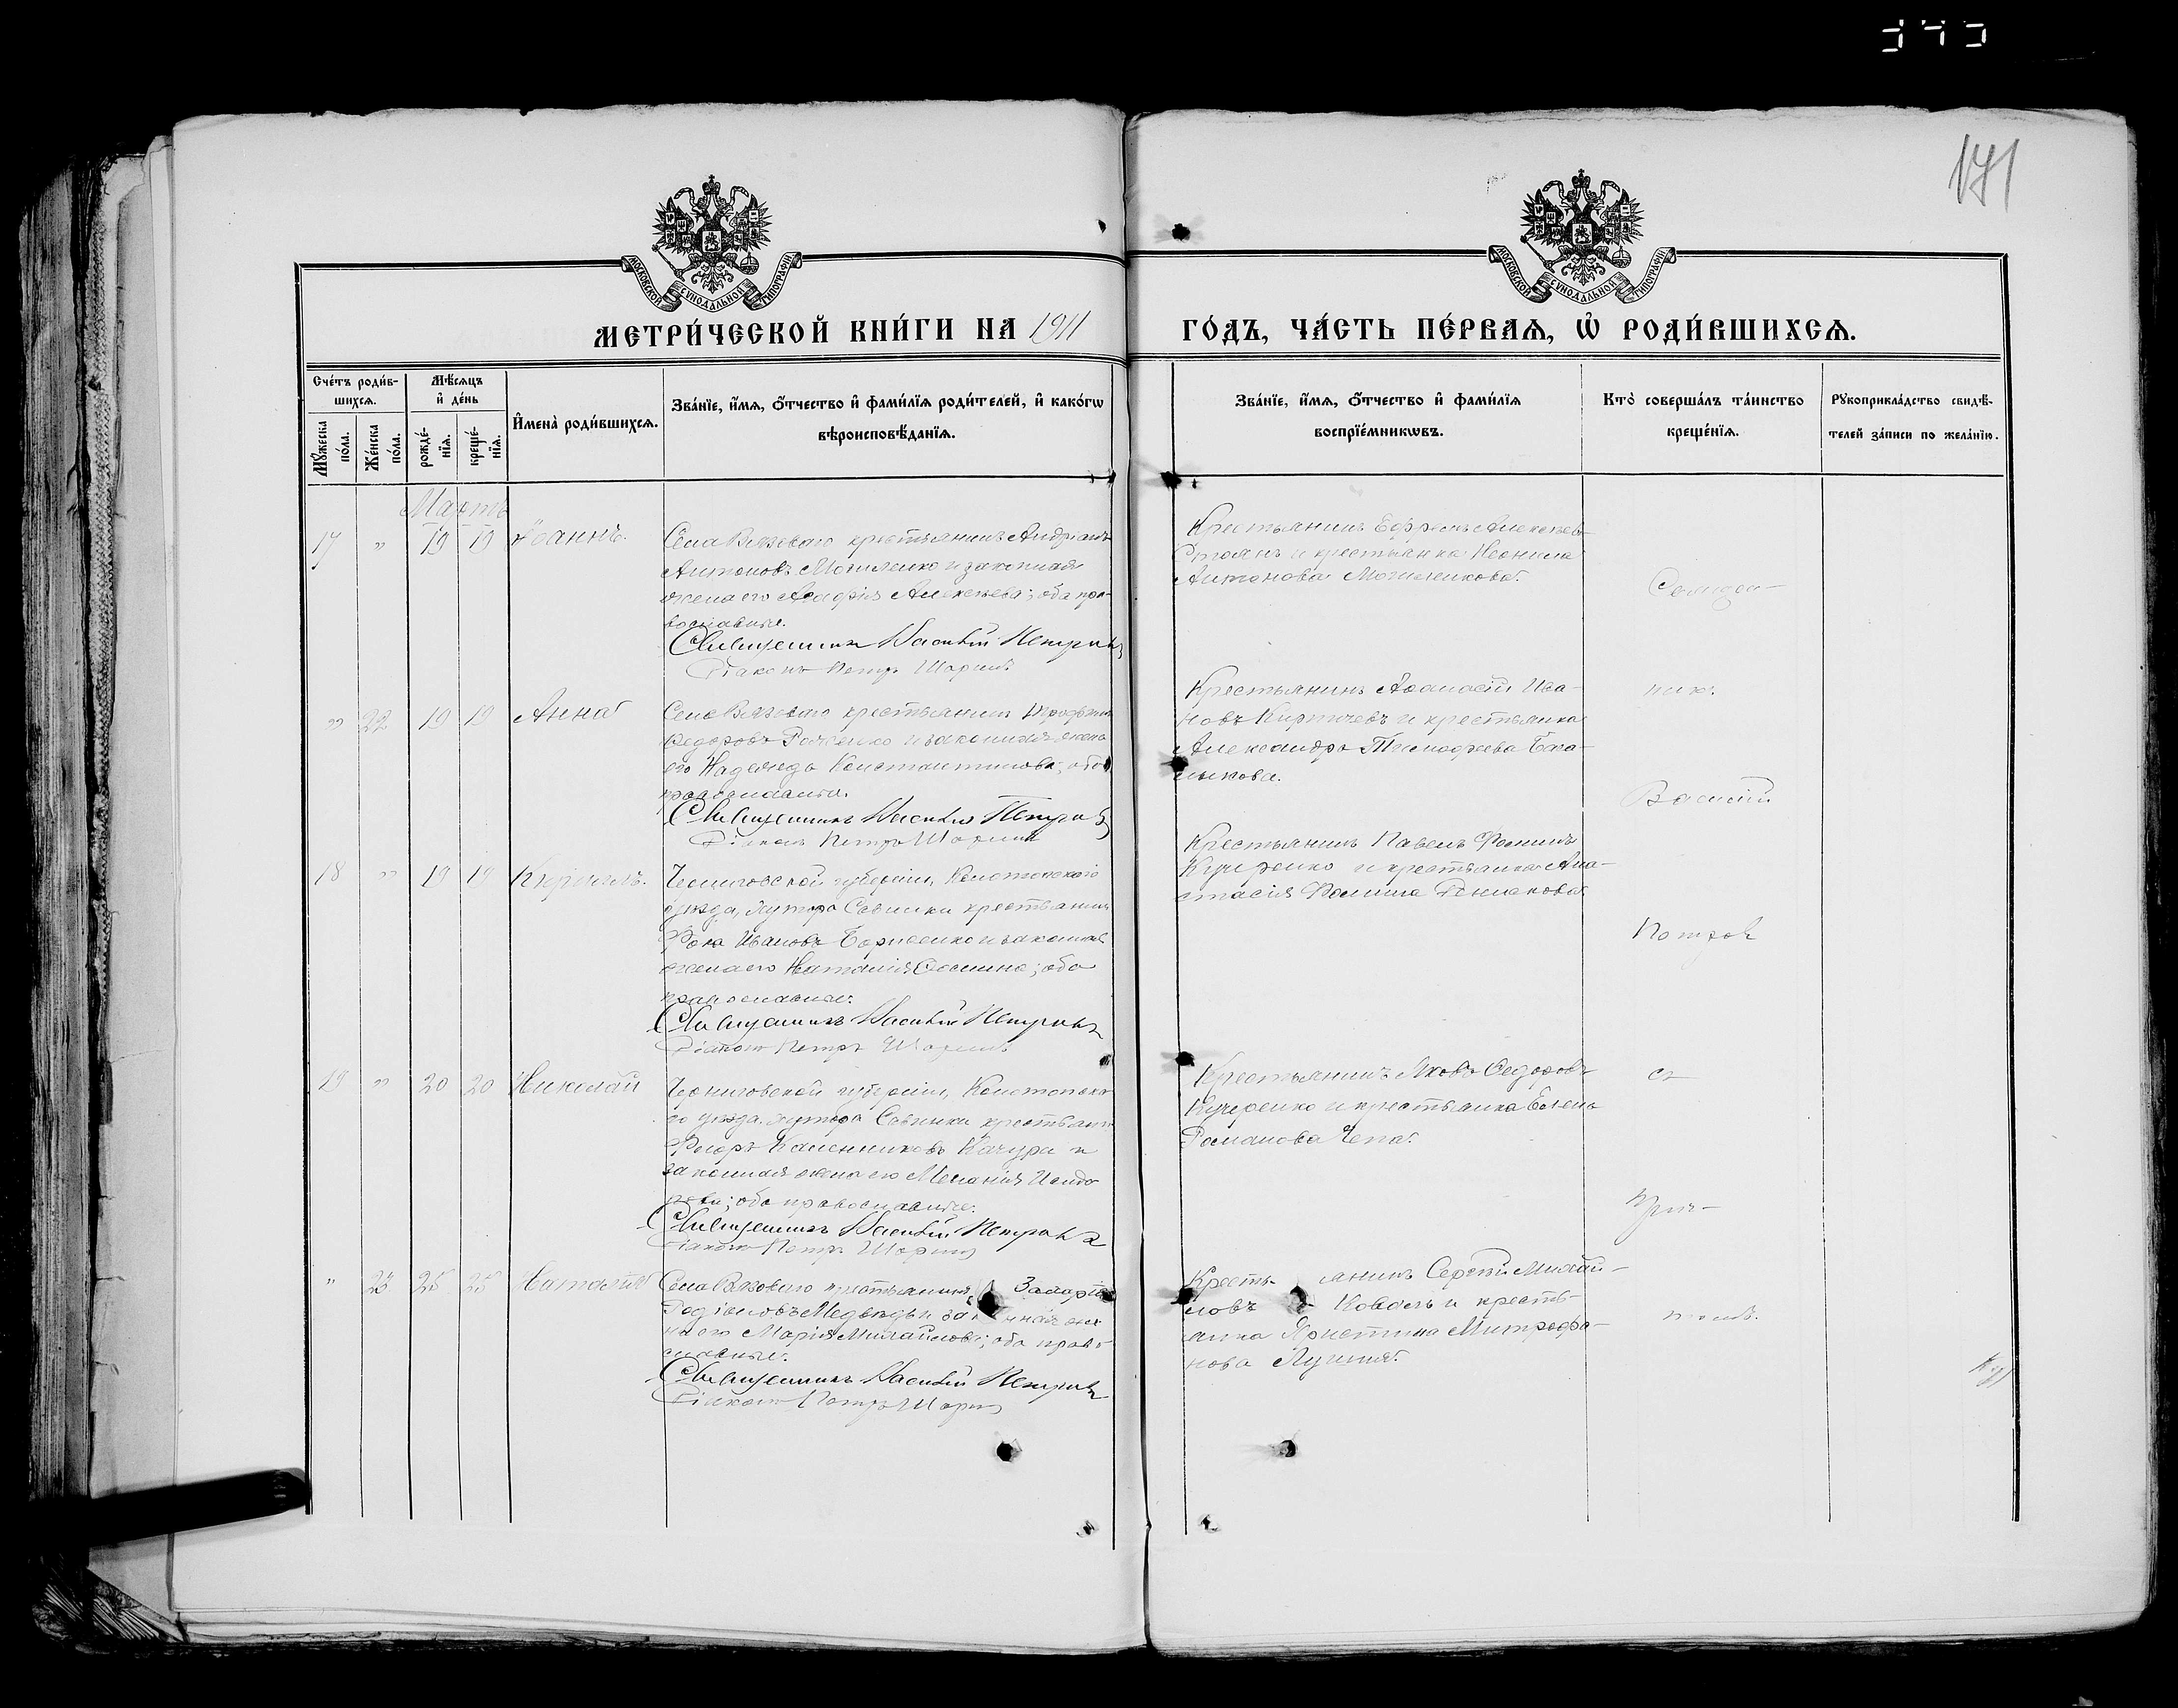 171
МОСКОВСКОЙ СѴНОДАЛЬНОЙ ТИПОГРАФІИ
МОСКОВСКОЙ СѴНОДАЛЬНОЙ ТИПОГРАФІИ
МЕТРИ́ЧЕСКОЙ КНИ́ГИ НА 1911 ГО́ДЪ, ЧА́СТЬ ПЕ́РВАѦ, Ѡ҆ РОДИ́ВШИХСѦ.
Сче́тъ роди́в-
шихсѧ.
Мѣ́сѧцъ
и҆ де́нь
Мꙋ́жеска
по́ла.
Же́нска
по́ла.
рожде́-
нїѧ.
креще́-
нїѧ.
И҆мена̀ роди́вшихсѧ.
Зва́нїе, и҆́мѧ, ѻ҆́тчество и҆ фами́лїѧ роди́телей, и҆ како́гѡ
вѣроисповѣ́данїѧ.
Зва́нїе, и҆́мѧ, ѻ҆́тчество и҆ фами́лїѧ
воспрїе́мникѡвъ.
Кто̀ соверша́лъ та́инство
креще́нїѧ.
Рꙋкоприкла́дство свидѣ́-
телей за́писи по жела́нїю.
Мартъ
17 " 19 19 Іоаннъ.
Села Вязоваго крестьянинъ Андріанъ
Антоновъ Могиленко и законная
жена его Агафія Алексѣева; оба пра-
вославные.
Священникъ Василій Петровъ
Діаконъ Петръ
Крестьянинъ Ефремъ Алексѣевъ
и крестьянка Неонила
Антонова Могиленкова.
" 22 19 19 Анна
Села Вязоваго крестьянинъ
Ѳедоровъ и законная жена
его Надежда Константинова; оба
православные.
Священникъ Василій Петровъ
Діаконъ Петръ
Крестьянинъ Аѳанасій Ива-
новъ Кирпичевъ и крестьянка
Александра Тимофѣева
Василій
18 " 19 19 Кириллъ.
Черниговской губерніи, Конотопскаго
уѣзда, хутора Савинки крестьянинъ
Ѳока Ивановъ Борисенко и законная
жена его Наталія Ѳомина; оба
православные.
Священникъ Василій Петровъ
Діаконъ Петръ
Крестьянинъ Павелъ Ѳоминъ
Кучеренко и крестьянка Ана-
стасія Ѳомина
Петров
19 " 20 20 Николай
Черниговской губерніи, Конотопска-
го уѣзда, хутора Савинки крестьянинъ
Качура и
законная жена его Меланія Исидо-
рова; оба православные.
Священникъ Василій Петровъ
Діаконъ Петръ
Крестьянинъ Яковъ Ѳедоровъ
Кучеренко и крестьянка Елена
Романова Чепа.
съ
прич-
" 23 25 25 Наталія
Села Вязоваго крестьянинъ Захарій
Родіоновъ Медвѣдь и законная же-
на его Марія Михайлова; оба право-
славные.
Священникъ Василій Петровъ
Діаконъ Петръ
Крестьянинъ Сергѣй Михай-
ловъ Коваль и кресть-
янка Христина Митрофа-
нова
томъ.